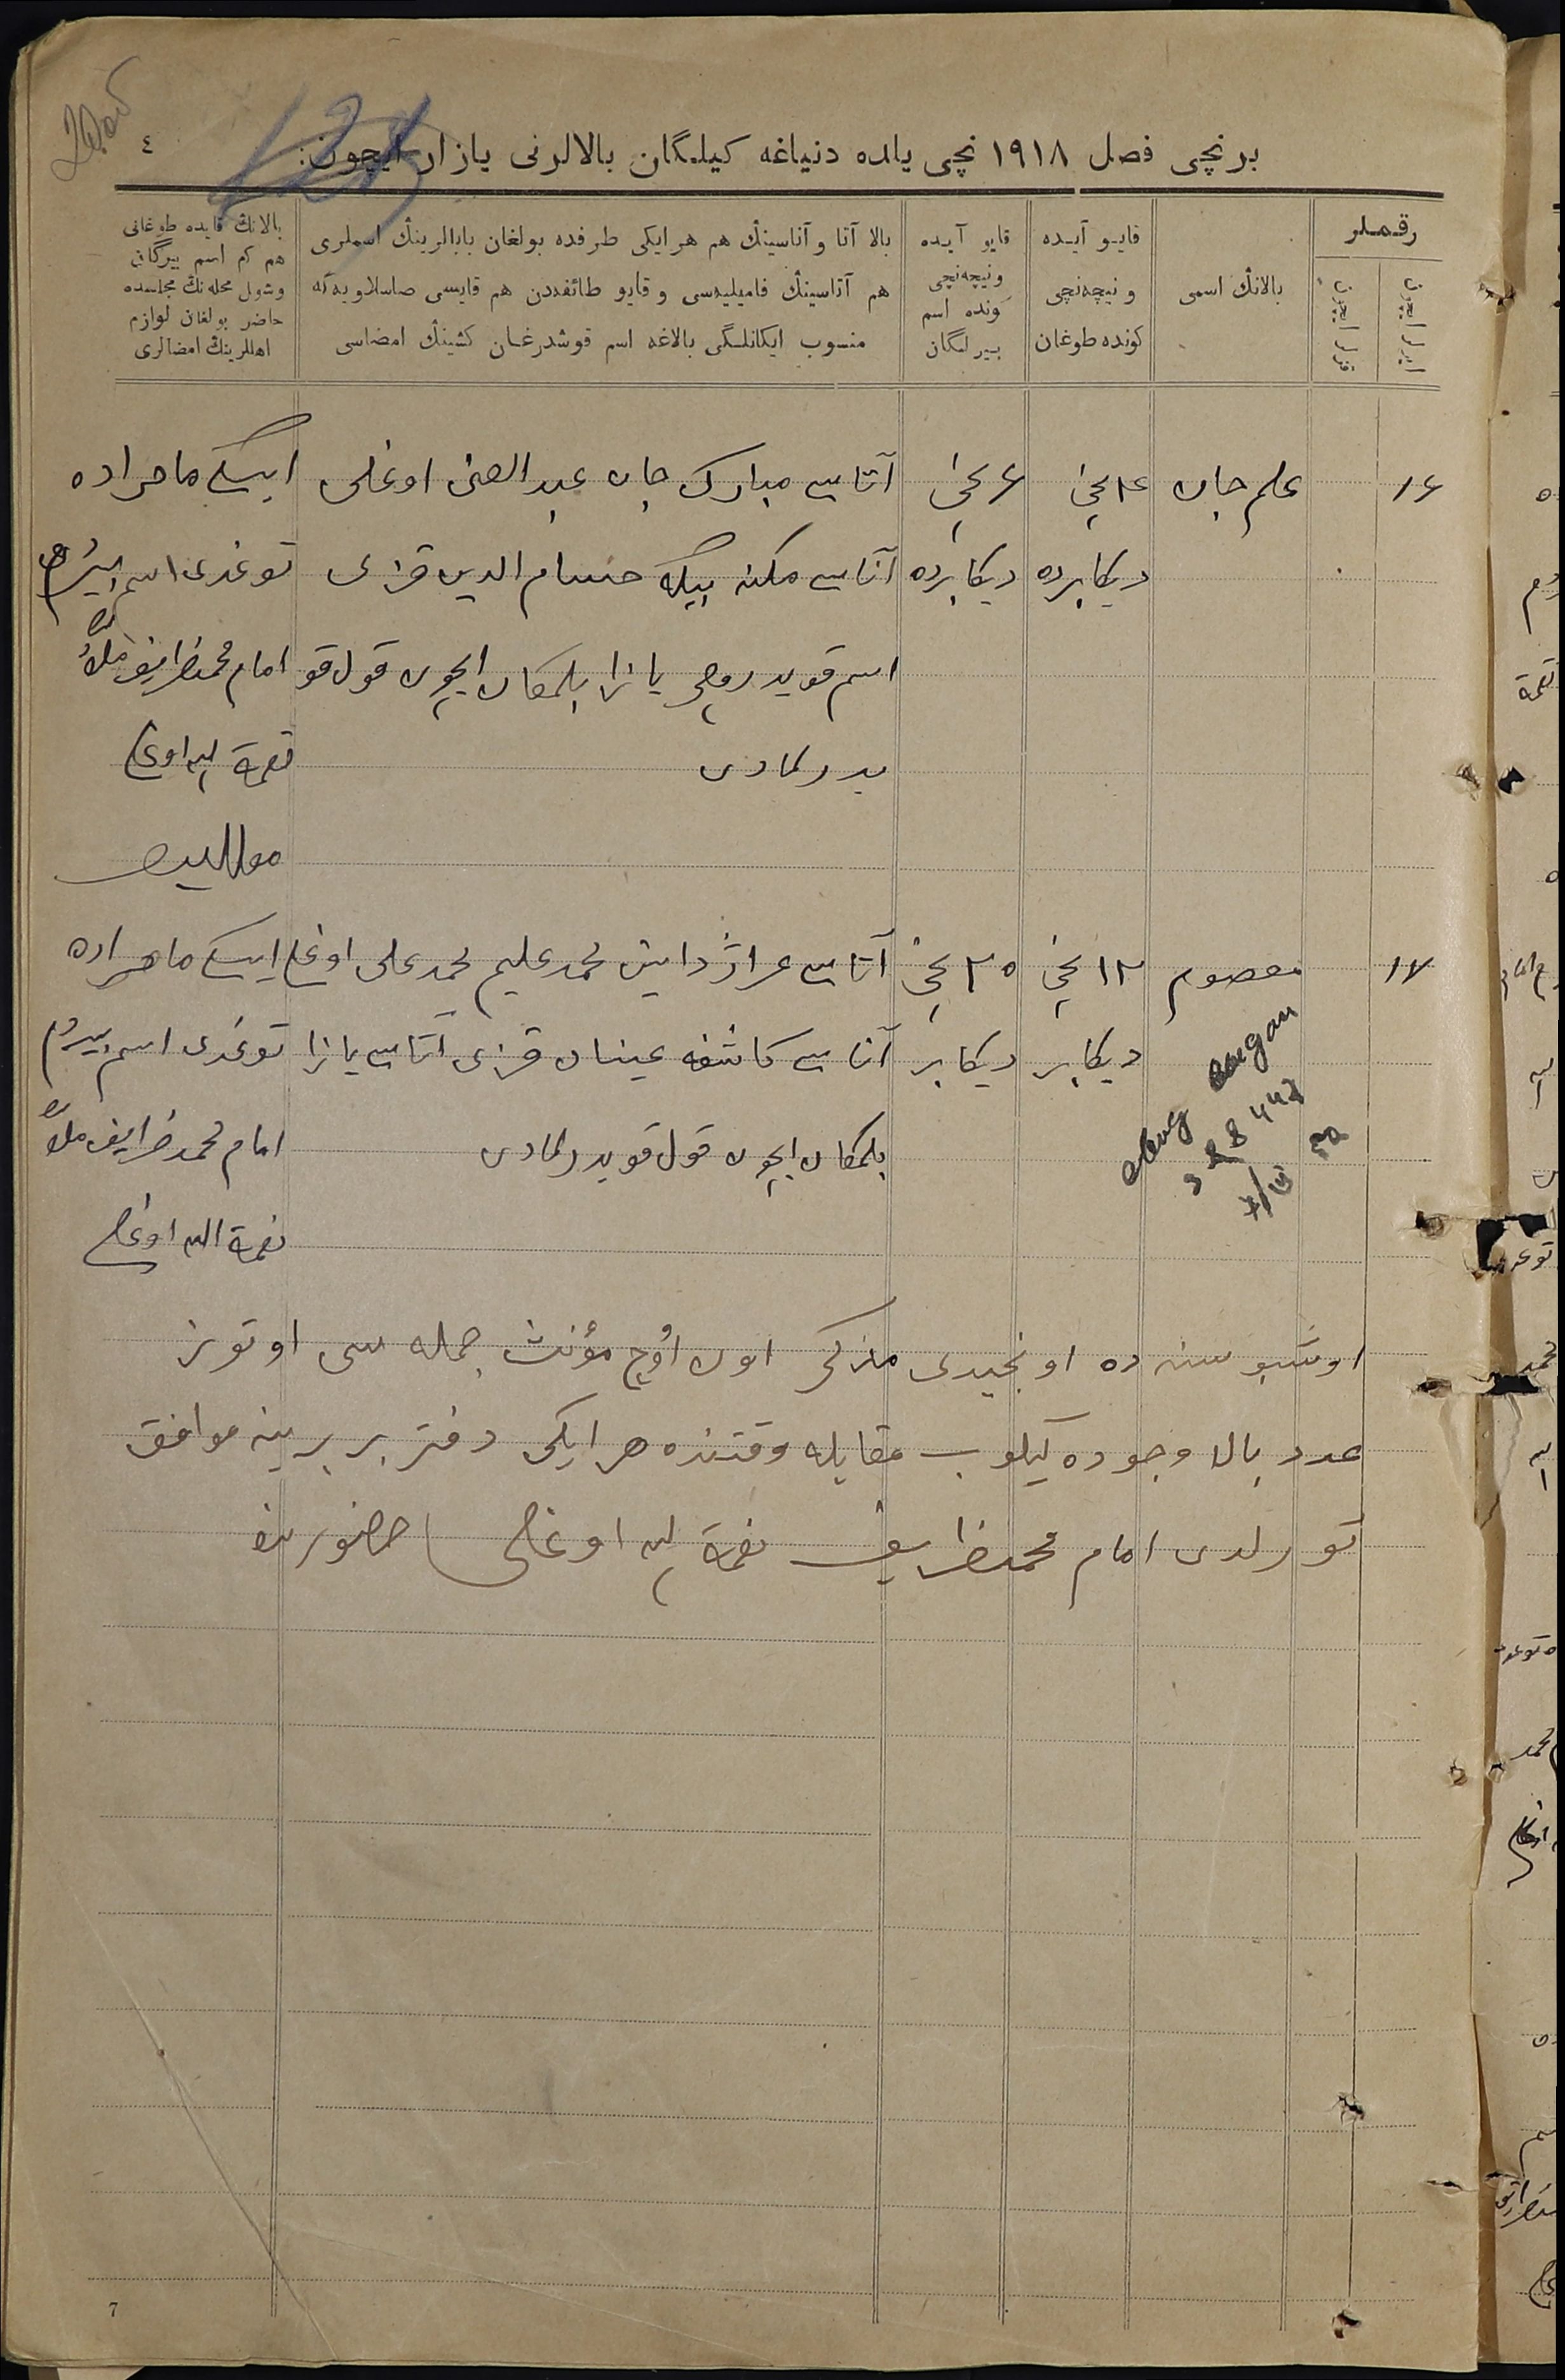 ٤
برنچی فصل ١٩١٨ نچی یلده دنیاغه کیلگان بالالرنی یازار ایچون:
رقملر
بالانڭ اسمی
قایو آیده
و نیچه‌نچی
کونده طوغان
قایو آیده
و نیچه‌نچی
کونده اسم
بیرلگان
بالا آتا و آناسینڭ هم هر ایکی طرفده بولغان بابالرینڭ اسملری
هم آتاسینڭ فامیلیه‌سی و قایو طائفه‌دن هم قایسی صاسلاویه‌گه
منسوب ایکانلگی بالاغه اسم قوشدرغان کشینڭ امضاسی
بالانڭ قایده طوغانی
هم کم اسم بیرگان
وشول محله‌نڭ مجلسده
حاضر بولغان لوازم
اهللرینڭ امضالری
١٦ علم جان نچی دیکابرده ٦ نچی دیکابرده
آتاسی مبارک جان عبدالغنی اوغلی
آناسی بیکه حسام الدین قزی
اسم قویدروچی یازا بلمکان ایچون قول قو
یدرلمادی
ایسکی ماحراده
توغدی اسم بیردم
امام محمدظریف ملا
نعمة الله اوغلی
١٧ معصوم ١٢ نچی دیکابر ٢٥ نچی دیکابر
آتاسی محمدعلیم محمدعلی اوغلی
آناسی کاشفه قزی آتاسی یازا
بلمکان ایچون قول قویدرلمادی
ایسکی ماحراده
توغدی اسم بیردم
امام محمد ظریف ملا
نعمة الله اوغلی
اوشبو سنه ده اونجیدی مذکر اون اوچ مؤنث جمله سی اوتوز
عدد بالا وجوده کیلوب مقابله وقتنده هر ایکی دفتر بر برینه موافق
تورلدی امام محمدظریف نعمة الله اوغلی
7